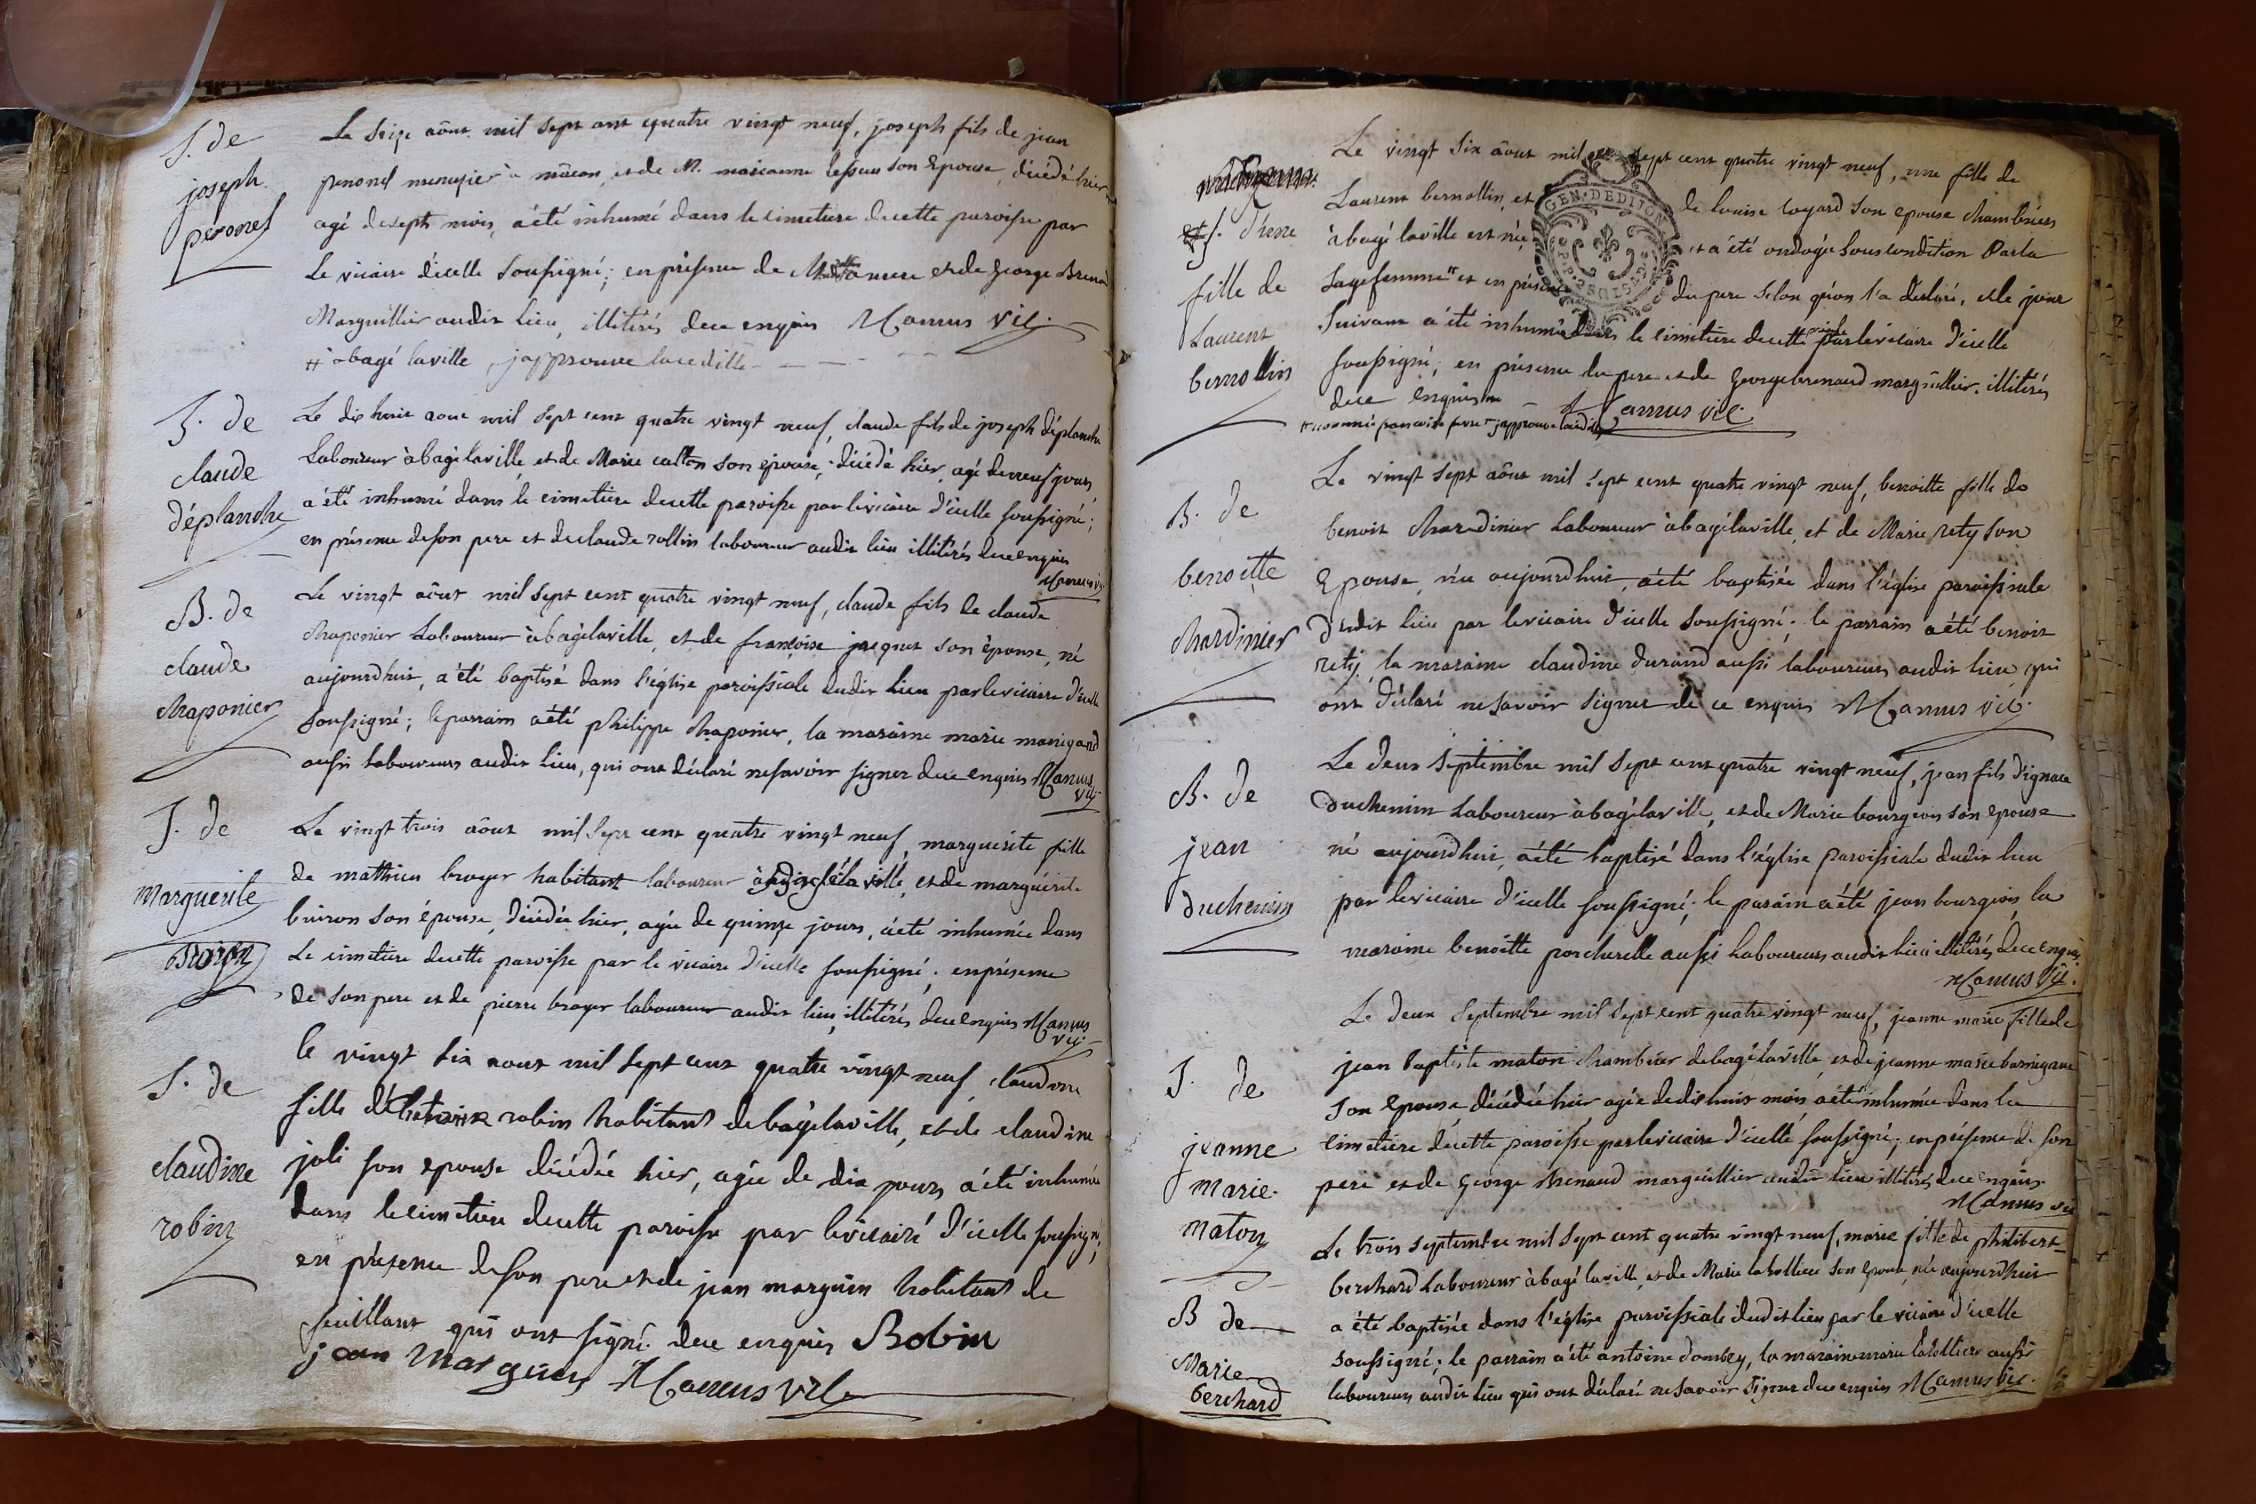 S. de
joseph
peronet
Le seize aôut mil sept cent quatre vingt neuf, joseph fils de jean
peronet menusier à mâcon, et de M. marianne son Epouse, décédé hier
agé de sept mois, a été inhumé dans le cimetiere de cette paroisse par
le vicaire d'icelle soussigné; en présence de et de George Brenaud
Marguillier audit lieu, illitérés de ce enquis Mamus vic.
# à bagé la ville, j'approuve
S. de
claude
déplanche
Le dix huit aout mil sept cent quatre vingt neuf, claude fils de joseph déplanche
Laboureur à bagé la ville, et de Marie catton son epouse, décédé hier, agé de neuf jours,
a été inhumé dans le cimetière de cette paroisse par le vicaire d'icelle soussigné;
en présence de son pere et de claude rollin laboureur audit lieu illitérés de ce enquis
Mamus vic.
B. de
claude
chaponier
Le vingt aôut mil sept cent quatre vingt neuf, claude fils de claude
chaponier Laboureur à bagé la ville, et de françoise jacquet son épouse, né
aujourdhuit, a été baptisé dans l'église paroissiale dudit lieu par le vicaire d'icelle
soussigné; le parrain a été philippe chaponier, la maraine marie manigand
aussi laboureurs audit lieu, qui ont déclaré ne savoir signer de ce enquis Mamus
vic.
S. de
Marguerite
Broyer
Le vingt trois aôut mil sept cent quatre vingt neuf, marguerite fille
de mathieu broyer habitant laboureur à bagé la ville, et de marguerite
buiron son épouse, décédée hier, agée de quinze jours, a été inhumée dans
Le cimetiere de cette paroisse par le vicaire d'icelle soussigné; en présence
de son pere et de pierre broyer laboureur audit lieu, illitérés de ce enquis Mamus
vic.
S. de
claudine
robin
le vingt six aout mil sept cent quatre vingt neuf, claudine
fille de robin habitant de bagé la ville, et de claudine
joli son epouse décédée hier, agée de dix jours a été inhumée
dans le cimetiere de cette paroisse par le vicaire d'icelle soussigné;
en présence de son pere et de jean marguin habitant de
feuillant qui ont signé de ce enquis Robin
jean Marguin Mamus vic.
S.
fille de
Laurent
bernollin
Le vingt six aôut mil sept cent quatre vingt neuf, une fille de
Laurent bernollin, et de louise loyard son epouse chambriers
à bagé la ville est née et a été ondoyée sous condition Par la
sagefemme # et en présence du pere selon qu'on l'a déclaré, et le jour
suivant a été inhumée dans le cimetiere de cette par le vicaire d'icelle
soussigné; en présence du pere et de George brenaud marguillier, illitérés
de ce enquis Mamus vic.
# nommée françoise
B. de
benoitte
chardinier
Le vingt sept aôut mil sept cent quatre vingt neuf, benoitte fille de
benoit chardinier Laboureur à bagé la ville, et de Marie rety son
Epouse, née aujourdhuit, a été baptisée dans l'église paroissiale
dudit lieu par le vicaire d'icelle soussigné; le parrain a été benoit
rety, la maraine claudine durand aussi laboureurs audit lieu qui
ont déclaré ne savoir signer de ce enquis Mamus vic.
B. de
jean
duchenim
Le deux septembre mil sept cent quatre vingt neuf, jean fils d'ignace
duchenim Laboureur à bagé la ville, et de Marie bourgeois son epouse
né aujourdhui, a été baptisé dans l'église paroissiale dudit lieu
par le vicaire d'icelle soussigné; le parain a été jean bourgeois, la
maraine benoitte porcherelle aussi laboureurs audit lieu illitérés de ce enquis.
Mamus vic.
S. de
jeanne
marie
maton
Le deux septembre mil sept cent quatre vingt neuf, jeanne marie fille de
jean baptiste maton chambrier de bagé la ville, et de jeanne marie
son epouse, décédée hier agée de dix huit mois a été inhumée dans le
cimetiere de cette paroisse par le vicaire d'icelle soussigné; en présence de son
pere et de George brenaud marguillier audit lieu illitérés de ce enquis
Mamus vic
B de
Marie
berchard
Le trois septembre mil sept cent quatre vingt neuf, marie fille de philibert
berchard Laboureur à bagé la ville, et de Marie son epouse, née aujourdhuit
a été baptisée dans l'église paroissiale dudit lieu par le vicaire d'icelle
soussigné; le parrain a été antoine dombey, la maraine marie aussi
laboureurs audit lieu qui ont déclaré ne savoir signer de ce enquis Mamus vic.
GEN. DE DIJON